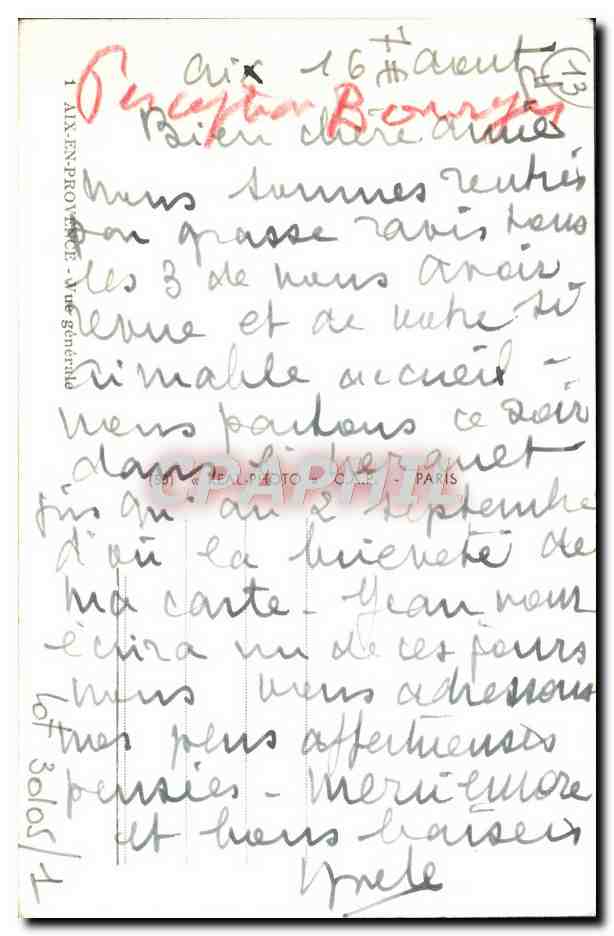 Aix 16 août
Perception Bourges
Bien chère amie
nous sommes rentrés
grasse ravis tous
les 3 de vous avoir
revue et de votre si
aimable accueil -
nous partons ce soir
dans
jusqu'au 2 septembre
d'où la brièveté de
ma carte - Jean vous
écrira un de ces jours
nous vous adressons
mes plus affectueuses
pensées - merci encore
et bons baisers
1 AIX-EN-PROVENCE - Vue générale
« REAL-PHOTO » C.A.P. - PARIS
CPAPHIL
13
lot 30/05/1